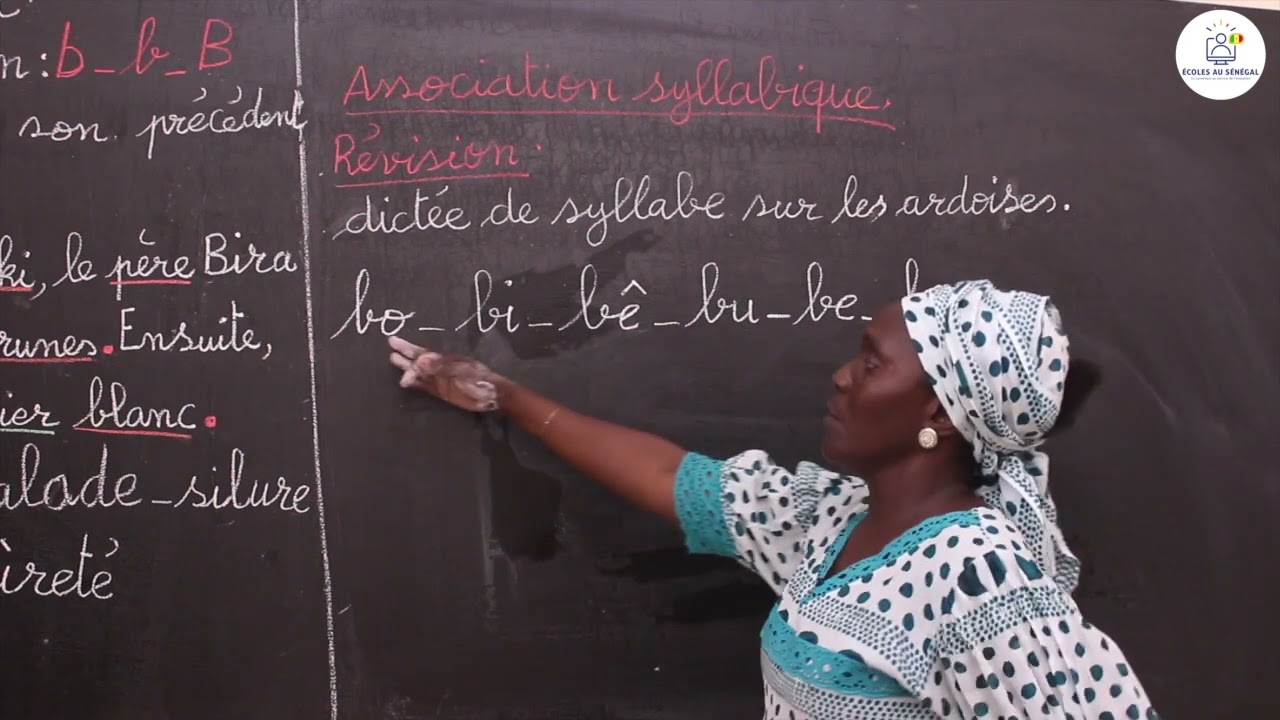 n: b - b - B
son précédent
ki, le père Bira
runes. Ensuite,
ier blanc.
alade - silure
ireté
Association syllabique.
Révision.
dictée de syllabe sur les ardoises.
bo - bi - bê - bu - be - b
ÉCOLES AU SÉNÉGAL